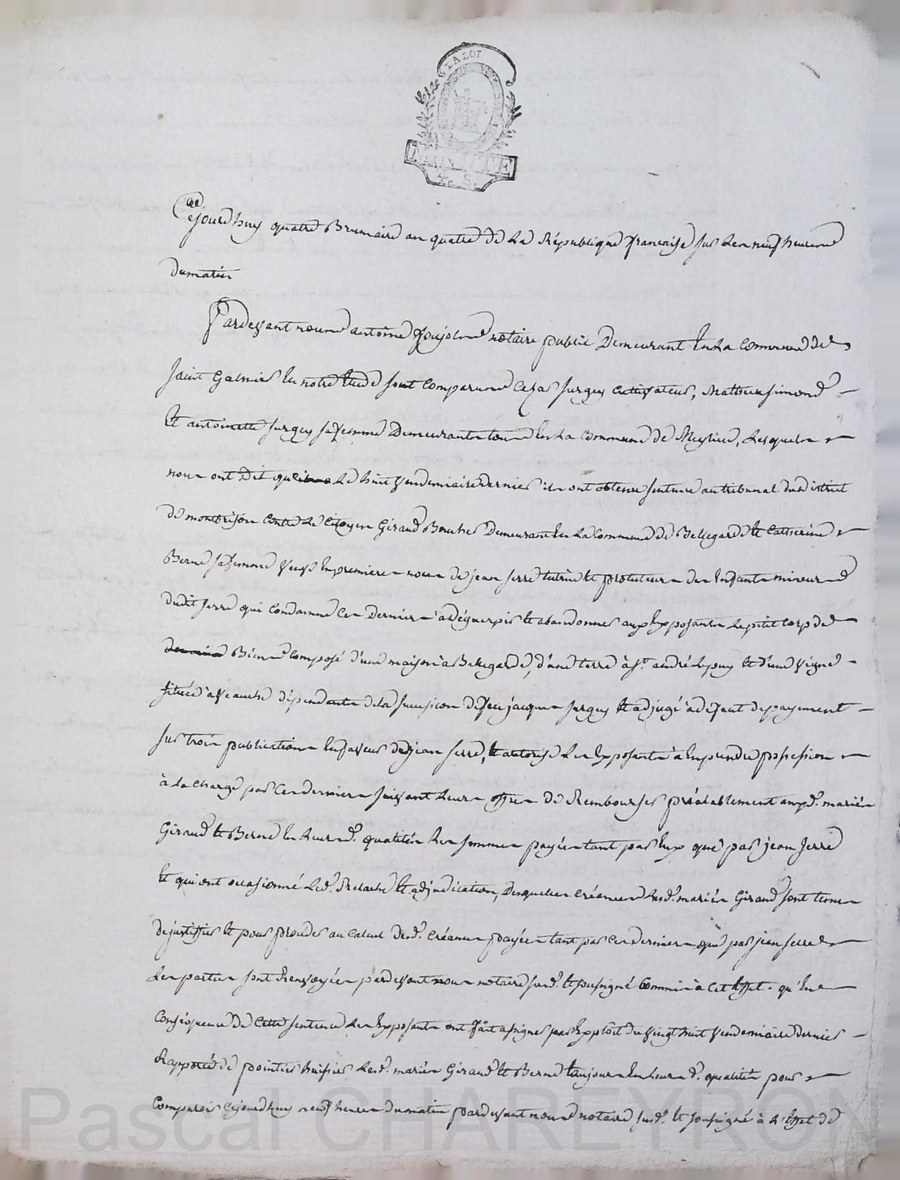 LA LOI
Cejourdhuy quatre Brumaire an quatre de La République française sur les neuf heures
du matin
Pardevant nous antoine notaire public Demeurant En La Commune de
Saint Galmier En notre Etude sont Comparus Surguy Cultivateur, Mathieu Simond
Et antoinette Surguy sa femme Demeurants tous En La Commune de Meylieu, Lesquels
nous ont dit que Le huit Vendemiaire dernier ils ont obtenu sentence au tribunal du district
de montbrison Contre Le Citoyen Giraud Demeurant En La Commune de Bellegarde Et Catherine
Berne sa femme Veuve En premieres noces de jean Serre tutrice Et protuteur des Enfants mineurs
dudit Serre qui Condamne Ces Derniers à déguerpir Et abandonner aux Exposants Le petit Corps de
Biens Composé d'une maison à Bellegarde, d'une terre à St. andré Le puy Et d'une Vigne
située à Veauche dépendants de la succession de feu jacques Surguy Et adjugé à defaut de payement
sur trois publications En faveur de jean Serre, Et autorise Les Exposants à En prendre possession
à La Charge par Ces derniers suivant Leurs offres de Rembourser préalablement auxd. mariés
Giraud Et Berne En Leurs d. qualités Les sommes payées tant par Eux que par jean Serre
Et qui ont occasionné Led. Et adjudication, Desquelles Créances Lesd. mariés Giraud sont tenus
de justiffier Et pour proceder au Calcul desd. Créances payées tant par Ces derniers que par jean Serre
Les parties sont Renvoyées pardevant nous notaire susd. Et soussigné Commis à Cet Effet. qu'En
Conséquence de Cette sentence Les Exposants ont fait assigner par Exploit du Vingt huit Vendemiaire dernier
Rapporté de huissier Lesd. mariés Giraud Et Berne toujours En Leurs d. qualités pour
Comparoir Cejourdhuy neuf heures du matin pardevant nous notaire susd. Et soussigné à L'Effet de
Pascal CHAREYRON